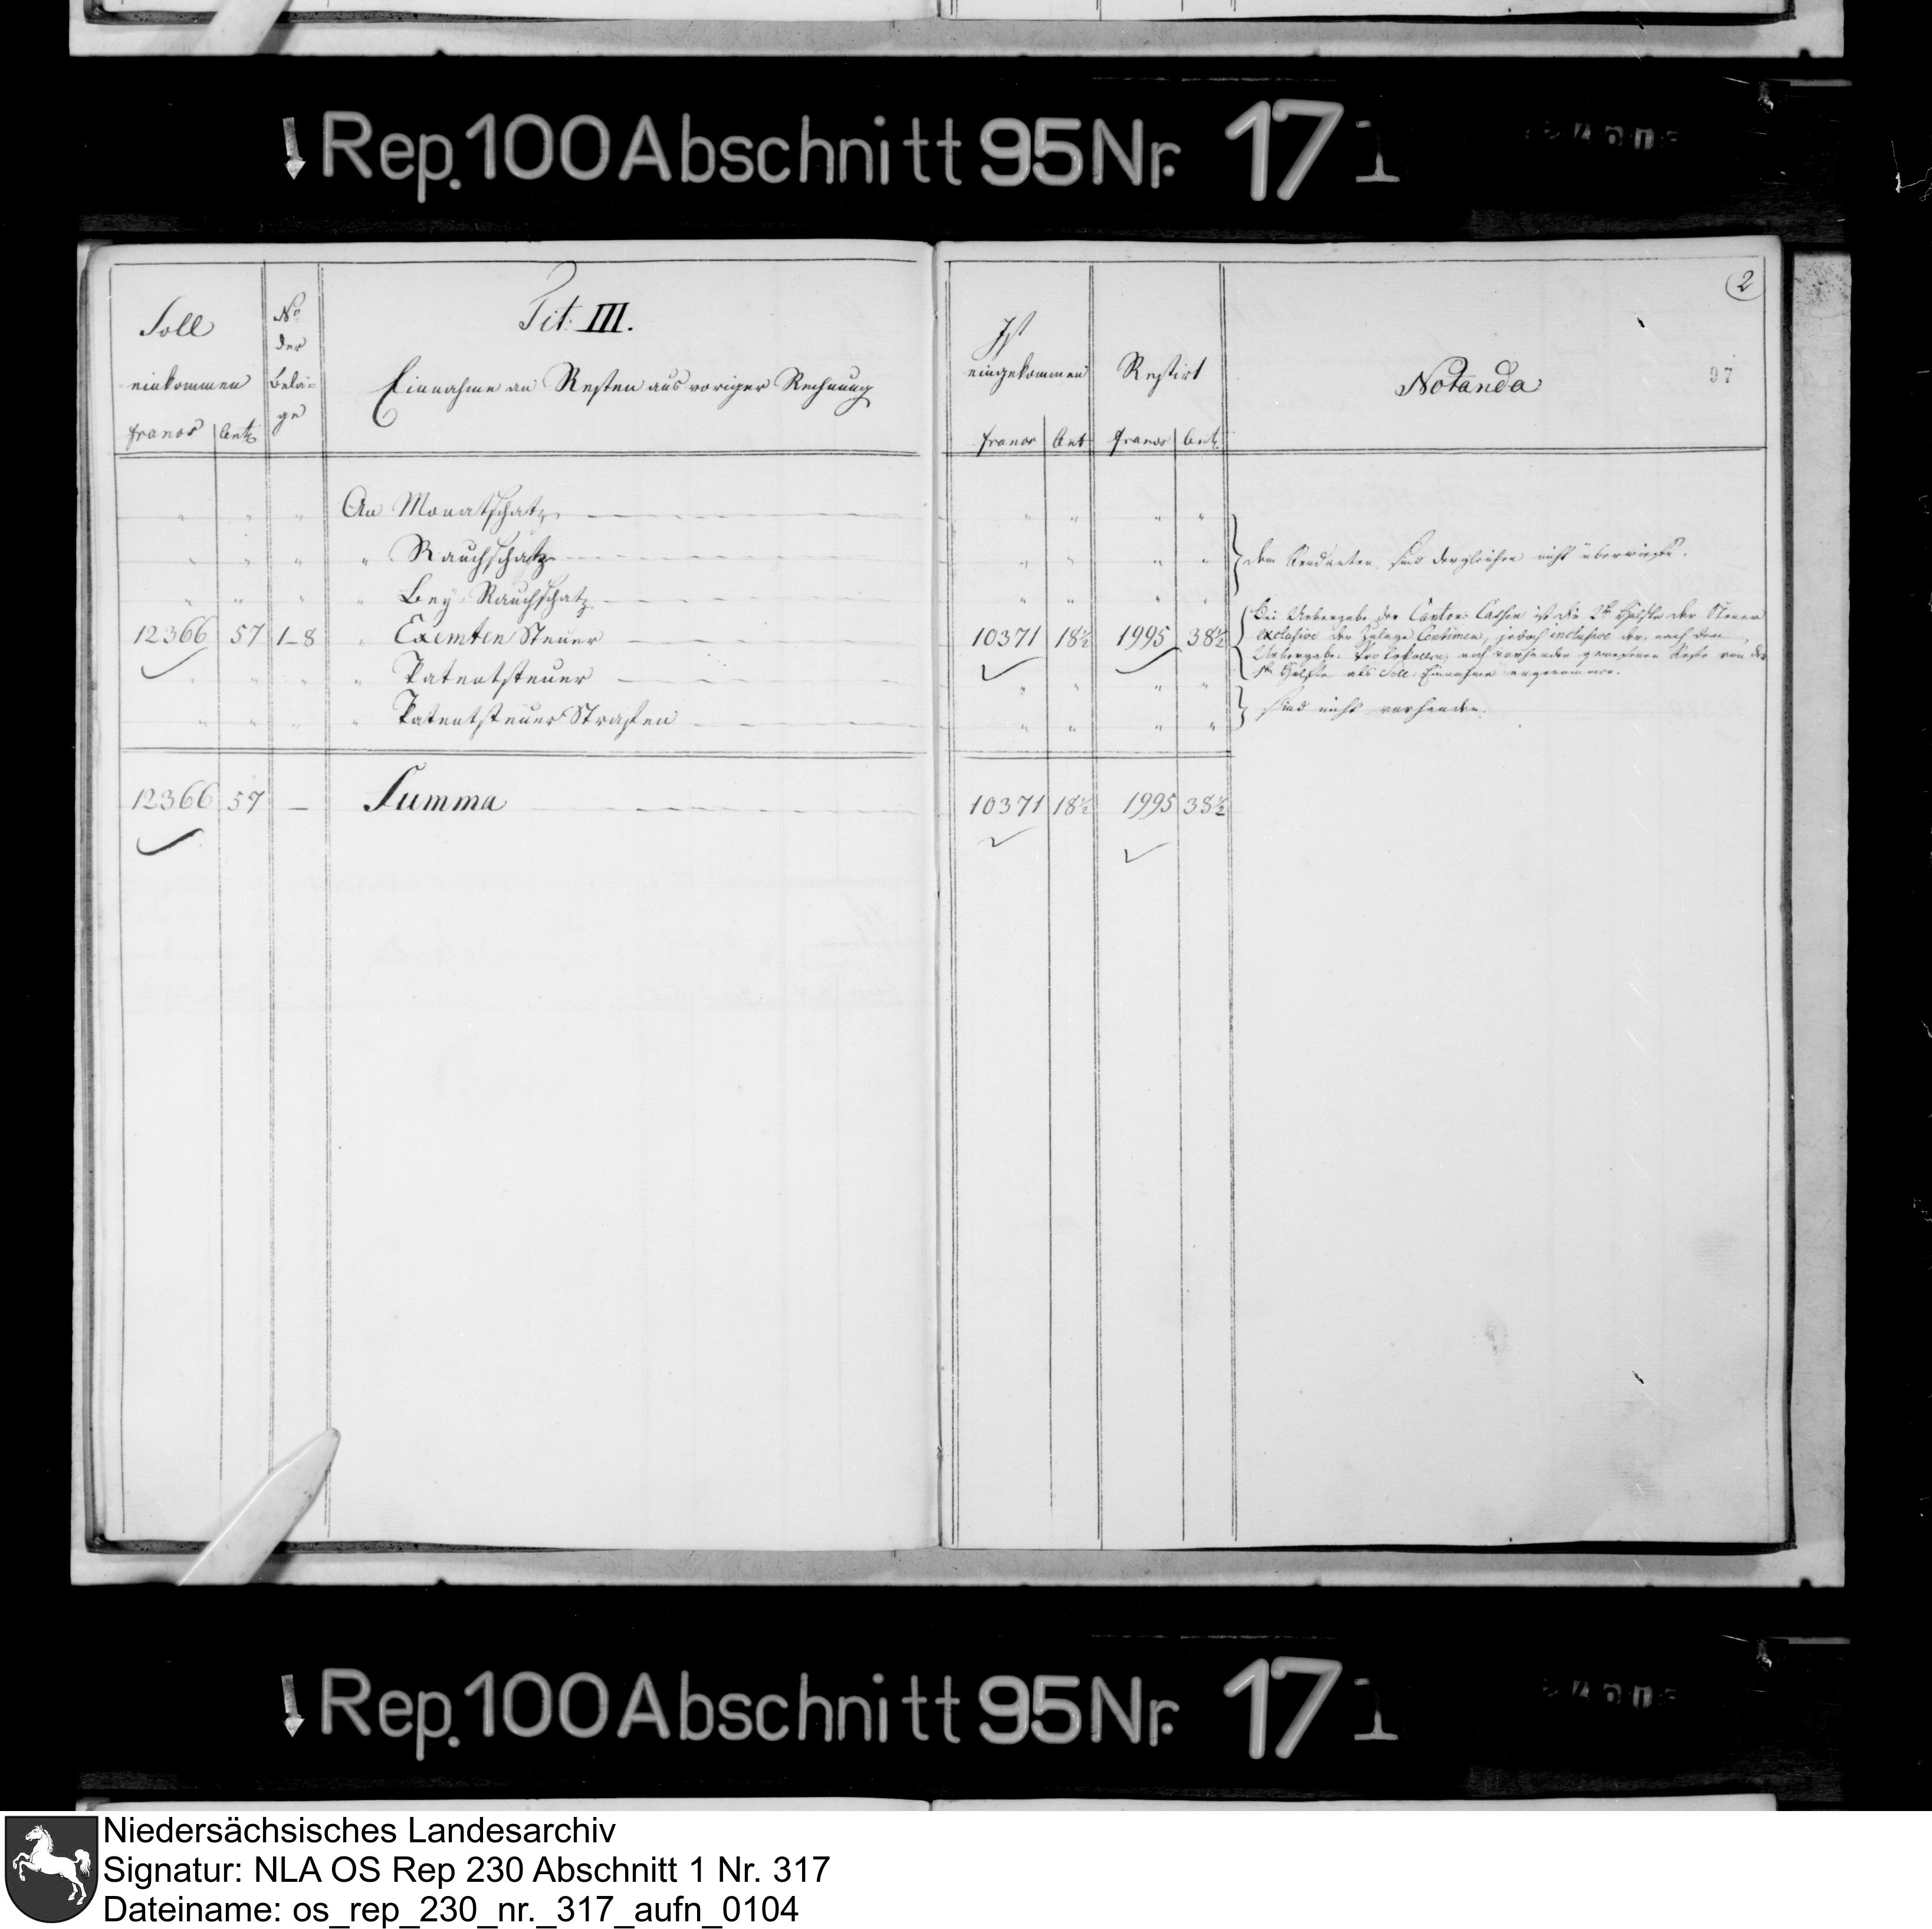 Rep. 100 Abschnitt 95 Nr. 17 1
2
97
Soll
einkommen
francs Cent
No
der
Belä-
ge
Tit: III.
Einnahme an Resten aus voriger Rechnung
Ist
eingekommen
francs Cent
Restirt
francs Cent
Notanda
" " " An Monatschatz " " " "
" " " " Rauchschatz " " " " dem Rendanten sind dergleichen nicht überwiesen.
" " " " Bey-Rauchschatz " " " "
12366 57 1-8 " Exemten Steuer 10371 18½ 1995 38½
Bei Uebergabe der Cantons Casse ist die 2te Hälfte der Steuer
exclusive der Zulage Centimen, jedoch inclusive der, nach dem
Uebergabe-Protokolle, noch vorhanden gewesenen Reste von der
1ten Hälfte als Soll-Einnahme angenommen.
" " " " Patentsteuer " " " "
sind nicht vorhanden.
" " " " Patentsteuer Strafen " " " "
12366 57 — Summa 10371 18½ 1995 38½
Rep. 100 Abschnitt 95 Nr. 17 1
Niedersächsisches Landesarchiv
Signatur: NLA OS Rep 230 Abschnitt 1 Nr. 317
Dateiname: os_rep_230_nr._317_aufn_0104